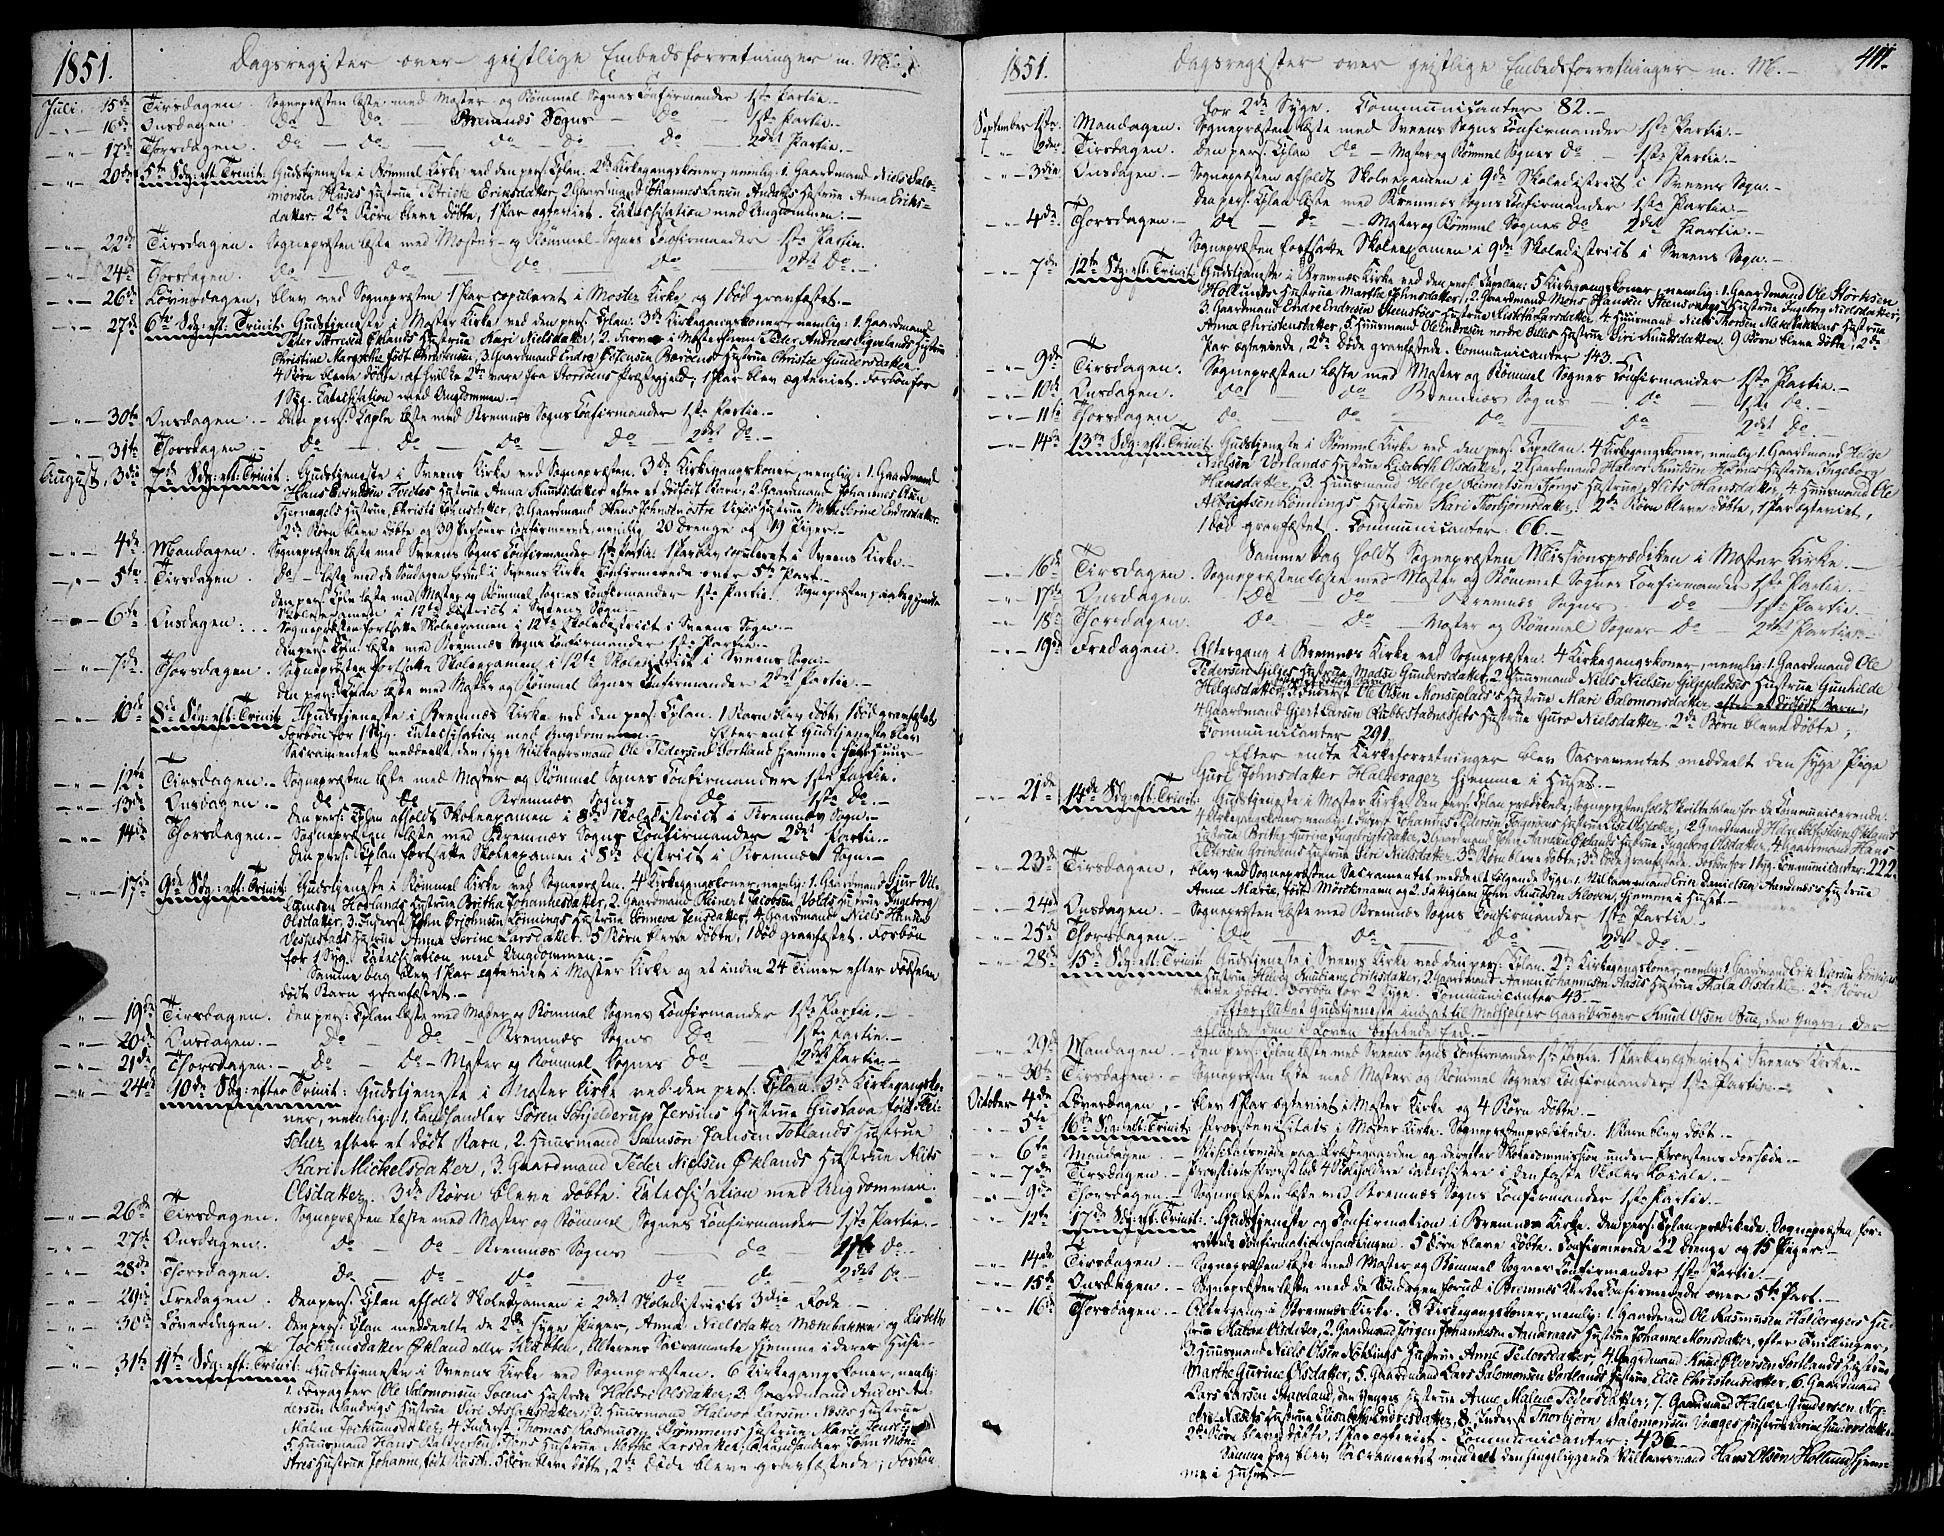 1851. Dagsregister over geistlige Embedsforretninger m. M.
Juli. 15de Tirsdagen. Sognepræsten læste med Moster og Rømmel Sognes Confirmander 1ste Partie.
16de Onsdagen do do Bremnæs Sogns do 1ste Partie.
17de Thorsdagen. do do do do do 2det Partie.
20de 5te Sdg: eft. Trinit: Gudstjeneste i Rømmel Kirke ved den pers. Cplan. 2de Kirkegangskoner, nemlig: 1. Gaardmand Niels Salo-
monsen Huses Hustrue Petricke Eriksdatter, 2. Gaardmand Johannes Larsen Andahls Hustrue Anna Eriks-
datter. 2de Børn bleve døbte, 1 Par ægteviet. Catechisation med Ungdommen.
22de Tirsdagen. Sognepræsten læste med Moster og Rømmel Sognes Confirmander 1ste Partie.
24de Thorsdagen. do do do do 2det do.
26de Løverdagen, blev ved Sognepræsten 1 Par copuleret i Moster Kirke og 1 død gravfæstet.
27de 6te Sdg: eft: Trinit: Gudstjeneste i Moster Kirke ved den pers. Cplan: 3de Kirkegangskoner, nemlig: 1. Gaardmand
Peder Tørresen Øklands Hustrue Kari Nielsdatter, 2. i Mosterhavn Peder Andreas Hustrue
Christine Margrethe født Christensen, 3. Gaardmand Hustrue Christie Gundersdatter.
4 Børn bleve døbte, af hvilke 2de vare fra Stordøens Præstegjeld; 1 Par blev ægteviet. Forbøn for
1 Syg. Catechisation med Ungdommen.
30te Onsdagen. Den pers. Caplan læste med Bremnæs Sogns Confirmander 1ste Partie.
31te Thorsdagen do do do do 2det do.
August, 3die 7de Sdg: eft: Trinit: Gudstjeneste i Sveens Kirke ved Sognepræsten. 3de Kirkegangskoner, nemlig: 1. Gaardmand
Hans Tveites Hustrue Anna Knutsdatter efter et dødfødt Barn, 2. Gaardmand Johannes
Tjernagels Hustrue, Christi Johnsdatter, 3. Gaardmand Hans Johnsen østre Vigs Hustrue Marte Serine Endresdatter.
2de Børn bleve døbte og 39 Personer confirmerede, nemlig 20 Drenge og 19 Piger.
4de Mandagen. Sognepræsten læste med Sveens Sogns Confirmander 1ste Partie. 1 Par blev copuleret i Sveens Kirke.
5te Tirsdagen. do læste med de Søndagen forud i Sveens Kirke Confirmerede over 5te Part.
den pers. Cpln læste med Moster og Rømmel Sognes Confirmander 1ste Partie. Sognepræsten paabegyndte
Skoleexamen i 12te District i Sveens Sogn.
6te Onsdagen. Sognepræsten fortsatte Skoleexamen i 12te Skoledistrict i Sveens Sogn.
den pers. Cpln. læste med Bremnæs Sogns Confirmander 1ste Partie.
7de Thorsdagen. Sognepræsten fortsatte Skoleexamen i 12te Skoledistrict i Sveens Sogn.
den pers. Cplan læste med Moster og Rømmel Sognes Confirmander 2det Partie.
10de 8de Sdg: eft: Trinit: Gudstjeneste i Bremnæs Kirke ved den pers. Cplan. 1 Barn blev døbt, 1 død gravfæstet,
Forbøn for 1 Syg. Catechisation med Ungdommen. Efter endt Gudstjeneste blev
Sacramentet meddeelt den syge Vilkaarsmand Ole Pedersen Sortland hjemme i Huus.
12te Tirsdagen. Sognepræsten læste med Moster og Rømmel Sognes Confirmander 1ste Partie.
13de Onsdagen. do do Bremnæs Sogns do 1ste do.
den pers. Cplan afholdt Skoleexamen i 8de Skoledistrict i Bremnæs Sogn.
14de Thorsdagen. Sognepræsten læste med Bremnæs Sogns Confirmander 2det Partie.
den pers. Cplan fortsatte Skoleexamen i 8de District i Bremnæs Sogn.
17de 9de Sdg: eft: Trinit: Gudstjeneste i Rømmel Kirke ved Sognepræsten. 4 Kirkegangskoner, nemlig: 1. Gaardmand Sjur Vil-
lumsen Hovlands Hustrue Britha Johannesdatter, 2. Gaardmand Reinert Jacobsen Volds Hustrue Ingeborg
Olsdatter, 3. Inderst John Lønnings Hustrue Sønneva Jensdatter, 4. Gaardmand Niels Hansen
Vespestads Hustrue Anna Serine Larsdatter. 5 Børn bleve døbte, 1 død gravfæstet. Forbøn
for 1 Syg. Catechisation med Ungdommen.
Samme Dag blev 1 Par ægteviet i Moster Kirke og et inden 24 Timer efter Fødselen
dødt Barn gravfæstet.
19de Tirsdagen. den pers. Cplan læste med Moster og Rømmel Sognes Confirmander 1ste Partie.
20de Onsdagen. do do Bremnæs Sogns do 1ste Partie.
21de Thorsdagen. do do Moster og Rømmel Sognes do 2det Partie.
24de 10de Sdg: efter Trinit: Gudstjeneste i Moster Kirke ved den pers. Cplan. 3de Kirkegangsko-
ner, nemlig: 1. Landhandler Søren Schjelderup Persens Hustrue Gustava født Flei-
scher efter et dødt Barn, 2. Huusmand Samson Jansen Toklands Hustrue
Kari Mickelsdatter, 3. Gaardmand Peder Nielsen Øklands Hustrue Alits
Olsdatter. 3de Børn bleve døbte. Catechisation med Ungdommen.
26de Tirsdagen. Sognepræsten læste med Moster og Rømmel Sognes Confirmander 1ste Partie.
27de Onsdagen. do do Bremnæs Sogns do 1ste do.
28de Thorsdagen. do do do do do 2det do.
29de Fredagen. Den pers. Cplan afholdt Skoleexamen i 2det Skoledistricts 3die Rode.
30te Løverdagen. Den pers. Cplan meddeelte de 2de syge Piger, Anna Nielsdatter og Lisbeth
Jochumsdatter Økland, Alterens Sacramente hjemme i deres Huse.
31te 11te Sdg: eft: Trinit: Gudstjeneste i Sveens Kirke ved Sognepræsten. 6 Kirkegangskoner, nemlig:
1. Forpagter Ole Salomonsen Hustrue Haldri Olsdatter, 2. Gaardmand Anders An-
dersen Sandvigs Hustrue Siri Aslaksdatter, 3. Huusmand Halvor Larsen Næses Hustrue
Malene Jochumsdatter, 4. Inderst Thomas Rasmusen Hustrue Marie Jensd.,
5. Huusmand Hans Hustrue Marthe Larsdatter, 6. Landhandler John Mon-
sens Hustrue Johanne, født Rasch. 5 Børn bleve døbte, 2de Døde bleve gravfæstede; Forbøn
1851. Dagsregister over geistlige Embedsforretninger m. M. 411.
for 2de Syge. Communicanter 82.
September 1ste. Mandagen. Sognepræsten læste med Sveens Sogns Confirmander 1ste Partie.
2den Tirsdagen. Den pers. Cplan do Moster og Rømmel Sognes do 1ste Partie.
3die Onsdagen. Sognepræsten afholdt Skoleexamen i 9de Skoledistrict i Sveens Sogn.
Den pers. Cplan læste med Bremnæs Sogns Confirmander 1ste Partie.
4de Thorsdagen. do do Moster og Rømmel Sognes do 2det Partie.
Sognepræsten fortsatte Skoleexamen i 9de Skoledistrict i Sveens Sogn.
7de 12te Sdg: eft: Trinit: Gudstjeneste i Bremnæs Kirke ved den pers. Capellan: 5 Kirkegangskoner, nemlig: 1. Gaardmand Ole Størksen
Hollunds Hustrue Marthe Johnsdatter, 2. Gaardmand Mons Hansen Hustrue Ingeborg Nielsdatter,
3. Gaardmand Endre Endresen Hustrue Kirsti Larsdatter, 4. Huusmand Niels Thorsen Hustrue
Anna Christensdatter, 5. Huusmand Ole Endresen nordre Hustrue Siri Knudsdatter. 9 Børn bleve døbte, 2de
Par ægteviede, 2de Døde gravfæstede. Communicanter 143.
9de Tirsdagen. Sognepræsten læste med Moster og Rømmel Sognes Confirmander 1ste Partie.
10de Onsdagen. do do Bremnæs Sogns do 1ste do.
11te Thorsdagen. do do do do 2det do.
14de 13de Sdg: eft: Trinit: Gudstjeneste i Rømmel Kirke ved den pers. Capellan. 4 Kirkegangskoner, nemlig 1. Gaardmand Helge
Nielsen Vorlands Hustrue Lisabeth Olsdatter, 2. Gaardmand Halvor Knudsen Hustrue Ingeborg
Hansdatter, 3. Huusmand Helge Reinertsen Hustrue Alits Hansdatter, 4. Huusmand Ole
Albrigtsen Lønnings Hustrue Kari Thorbjørnsdatter. 2de Børn bleve døbte, 1 Par ægteviet,
1 død gravfæstet. Communicanter 66.
Samme Dag holdt Sognepræsten Missionsprædiken i Moster Kirke.
16de Tirsdagen. Sognepræsten læste med Moster og Rømmel Sognes Confirmander 1ste Partie.
17de Onsdagen. do do Bremnæs Sogns do 1ste Partie.
18de Thorsdagen. do do Moster og Rømmel Sognes do 2det Partie.
19de Fredagen. Altergang i Bremnæs Kirke ved Sognepræsten. 4 Kirkegangskoner, nemlig: 1. Gaardmand Ole
Pedersen Giljes Hustrue Madse Gundersdatter, 2. Huusmand Niels Nielsen Giljepladses Hustrue Gunhilde
Helgesdatter, 3. Inderst Ole Olsen Monseplads's Hustrue Mari Salomonsdatter, efter et dødfødt Barn,
4. Gaardmand Gjert Larsen Rubbestadneset Hustrue Guro Nielsdatter. 2de Børn bleve døbte;
Communicanter 291.
Efter endte Kirkeforretninger blev Sacramentet meddeelt den syge Pige
Guri Johnsdatter Halderager hjemme i Huset.
21de 14de Sdg: eft: Trinit: Gudstjeneste i Moster Kirke. Den pers. Cplan prædikede; Sognepræsten holdt Skriftetalen for de Communicerende.
4 Kirkegangskoner, nemlig: 1. Johannes Pedersen Hustrue Lise Olsdatter, 2. Gaardmand Helge Øklands
Hustrue Birthe Gurine Ingebrigtsdatter, 3. Gaardmand John Hansen Øklands Hustrue Ingeborg Olsdatter, 4. Gaardmand Hans
Petersen Grindems Hustrue Siri Nielsdatter. 3de Børn bleve døbte, 3de Døde gravfæstede. Forbøn for 1 Syg. Communicanter: 222.
23de Tirsdagen, blev ved Sognepræsten Sacramentet meddeelt følgende Syge: 1. Vilkaarsmand Erik Danielsen Hustrue
Anne Marie, født Mørckmann og 2. Fattiglem John Knudsen Kloven, hjemme i Huset.
24de Onsdagen. Sognepræsten læste med Bremnæs Sogns Confirmander 1ste Partie.
25de Thorsdagen. do do do 2det do.
28de 15de Sdg: eft: Trinit: Gudstjeneste i Sveens Kirke ved den pers. Cplan. 2de Kirkegangskoner, nemlig: 1. Gaardmand Erik
Hustrue Eriksdatter, 2. Gaardmand Johannesen Hustrue Olsdatter. 2de Børn
bleve døbte. Forbøn for 2 Syge. Communicanter 43.
Efter sluttet Gudstjeneste indsat til Medhjelper Gaardbruger Knud Olsen Bue, den yngre, der
aflagde den i Loven befalede Eed.
29de Mandagen. Den pers. Cplan læste med Sveens Sogns Confirmander 1ste Partie. 1 Par blev ægteviet i Sveens Kirke.
30te Tirsdagen. Sognepræsten læste med Moster og Rømmel Sognes Confirmander 1ste Partie.
October 4de Løverdagen, blev 1 Par ægteviet i Moster Kirke og 4 Børn døbte.
5te 16de Sdg: eft: Trinit: Provstevisitats i Moster Kirke. Sognepræsten prædikede. 1 Barn blev døbt.
6te Mandagen Møde paa Præstegaarden og derefter Skolecommission under Provstens Forsæde.
7de Tirsdagen. 4 Skoleholdere catechisere i den faste Skoles Locale.
9de Thorsdagen. Sognepræsten læste med Bremnæs Sogns Confirmander 1ste Partie.
12te 17de Sdg: eft: Trinit: Gudstjeneste og Confirmation i Bremnæs Kirke. Den pers. Cplan prædikede, Sognepræsten for-
rettede Confirmationshandlingen. 5 Børn bleve døbte. Confirmerede 22 Drenge og 15 Piger.
14de Tirsdagen. Sognepræsten læste med Moster og Rømmel Sognes Confirmander 1ste Partie.
15de Onsdagen. Sognepræsten læste med de Søndagen forud i Bremnæs Kirke Confirmerede over 5te Part.
16de Thorsdagen. Altergang i Bremnæs Kirke. 8 Kirkegangskoner, nemlig: 1. Gaardmand Ole Rasmusen Halderagers Hu-
strue Malene Olsdatter, 2. Gaardmand Jørgen Johannesen Hustrue Johanne Monsdatter, efter Tvillinger,
3. Huusmand Niels Olsen Hustrue Anne Pedersdatter, 4. Gaardmand Knud Sortlands Hustrue
Marthe Gurine Olsdatter, 5. Gaardmand Lars Salomonsen Sortlands Hustrue Else Christensdatter, 6. Gaardmand
Lars Larsen, den yngres Hustrue Anne Malene Pedersdatter, 7. Gaardmand Halvor Gundersen
Hustrue Elisabeth Endresdatter, 8. Inderst Thorbjørn Salomonsen Hustrue Serine Gundersdatter.
2de Børn bleve døbte. 1 Par ægteviet. Communicanter: 436.
Samme Dag blev Sacramentet meddeelt den sengeliggende Vilkaarsmand Hans Olsen Hollund hjem-
me i Huset.